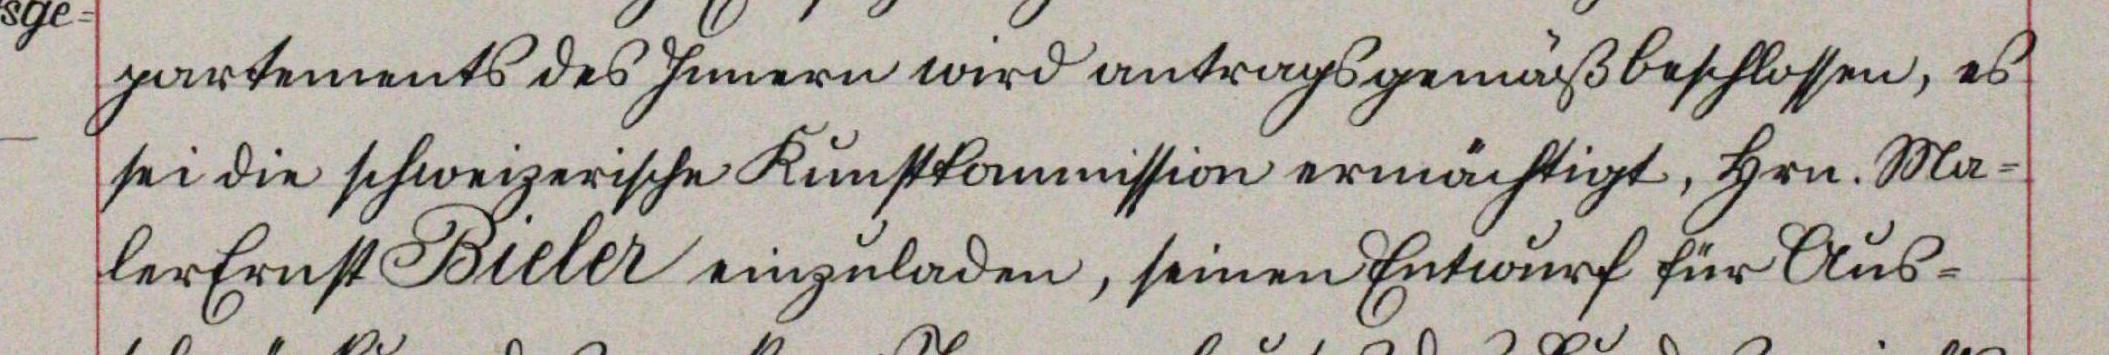 sge-
partements des Innern wird antragsgemäß beschlossen, es
sei die schweizerische Kunstkommission ermächtigt, Hrn. Ma-
ler Ernst Bieler einzuladen, seinen Entwurf für Aus-